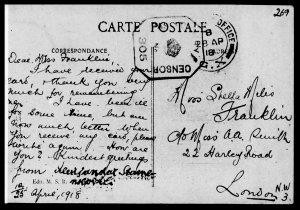 269
CARTE POSTALE
CORRESPONDANCE
Dear Miss Franklin,
I have received your
card, & thank you very
much for remembering
me. I have been ill
for some time, but am
now much better. When
you receive my card, please
write again! How are
you? Kindest greetings
from
April, 1918
Edit. M. S. R.
OFFICE
8
AP
18
CENSOR
305
Miss Stella Miles
Franklin
22 Harley Road
London N.W.
3.